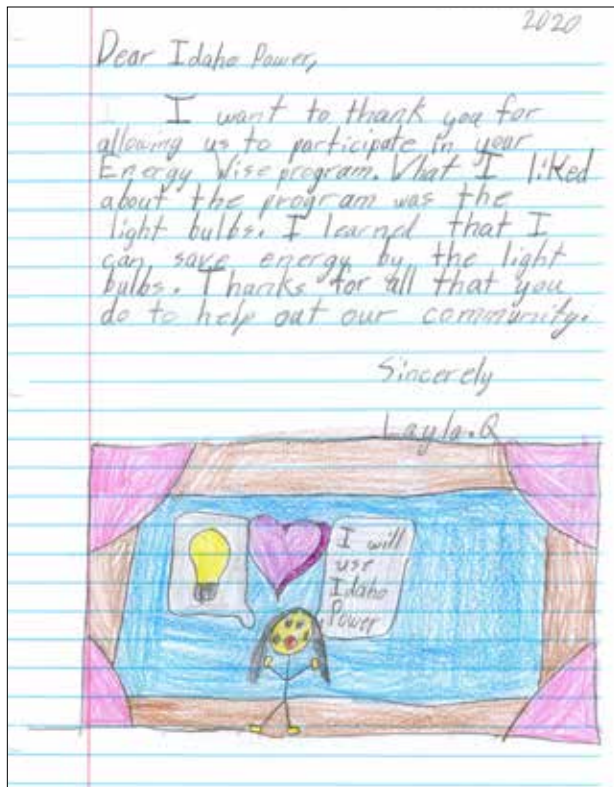 2020
Dear Idaho Power,
I want to thank you for
allowing us to participate in your
Energy Wise program. What I liked
about the program was the
light bulbs. I learned that I
can save energy by the light
bulbs. Thanks for all that you
do to help out our community.
Sincerely
Layla.Q
I will
use
Idaho
Power